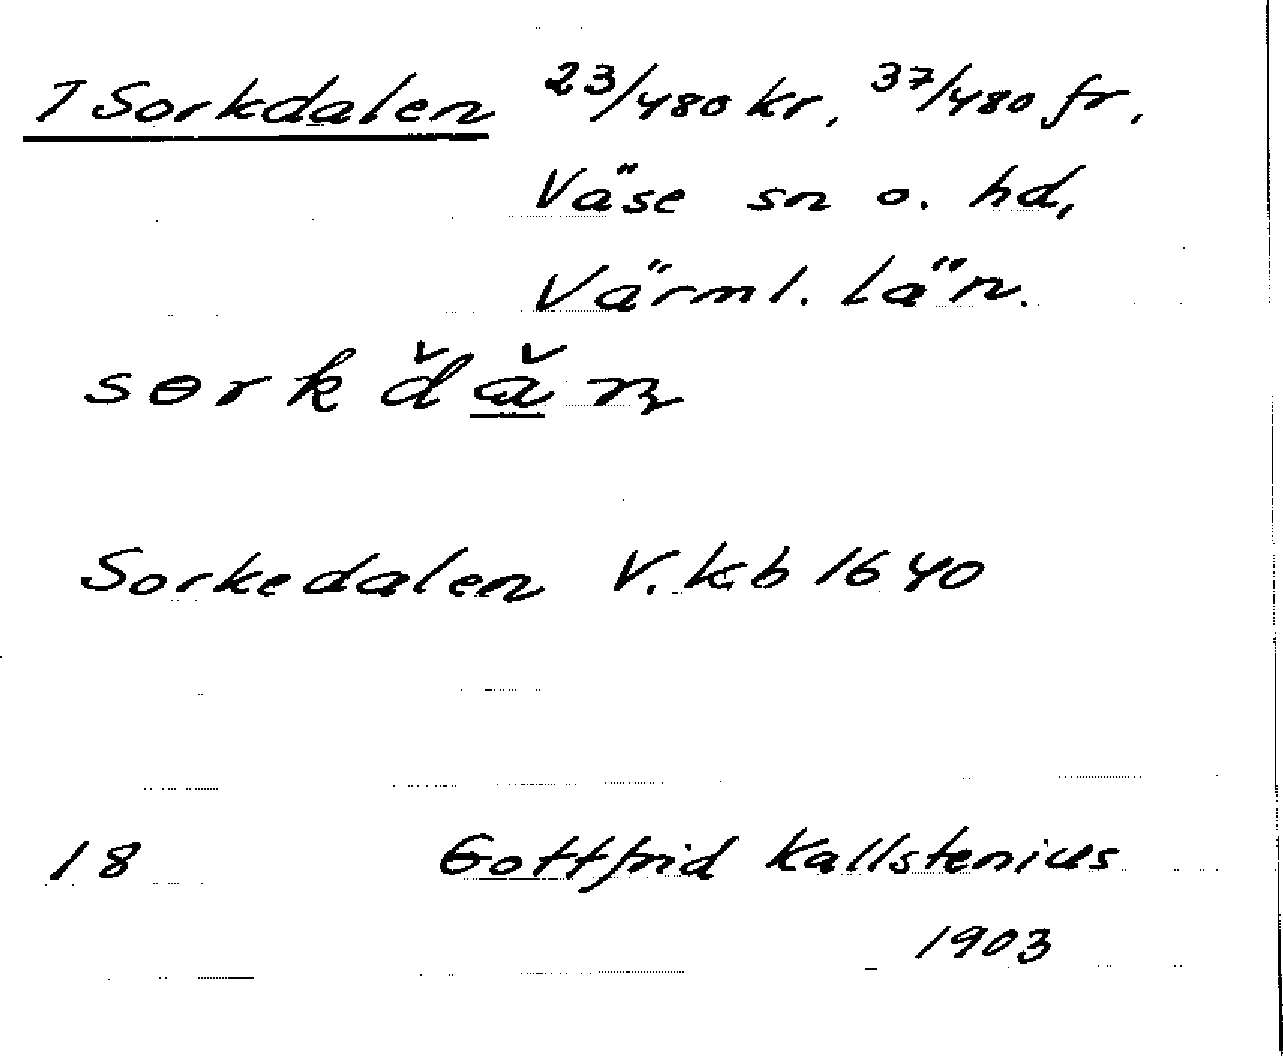 1 Sorkdalen 23/480 kr. 37/480 fr.
Väse sn o. hd,
Värml. län.
sɵrkd̆ăn
Sorkedalen V. kb 1640
18 Gottfrid Kallstenius
1903